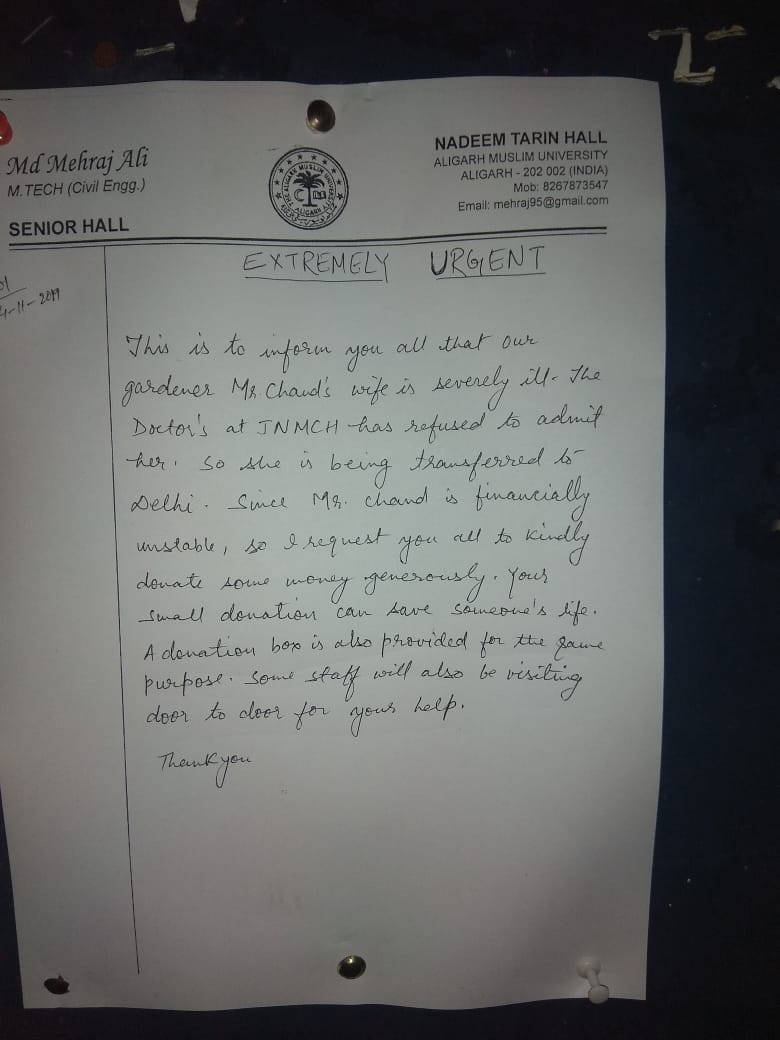 Md Mehraj Ali
M.TECH (Civil Engg.)
SENIOR HALL
NADEEM TARIN HALL
ALIGARH MUSLIM UNIVERSITY
ALIGARH - 202 002 (INDIA)
Mob: 8267873547
Email: mehraj95@gmail.com
THE ALIGARH MUSLIM UNIVERSITY
ALIGARH
EXTREMELY URGENT
4-11-2019
This is to inform you all that our
gardener Mr. Chand's wife is severely ill. The
Doctor's at JNMCH has refused to admit
her. So she is being transferred to
Delhi. Since Mr. Chand is financially
unstable, so I request you all to kindly
donate some money generously. Your
small donation can save someone's life.
A donation box is also provided for the same
purpose. Some staff will also be visiting
door to door for your help.
Thank you